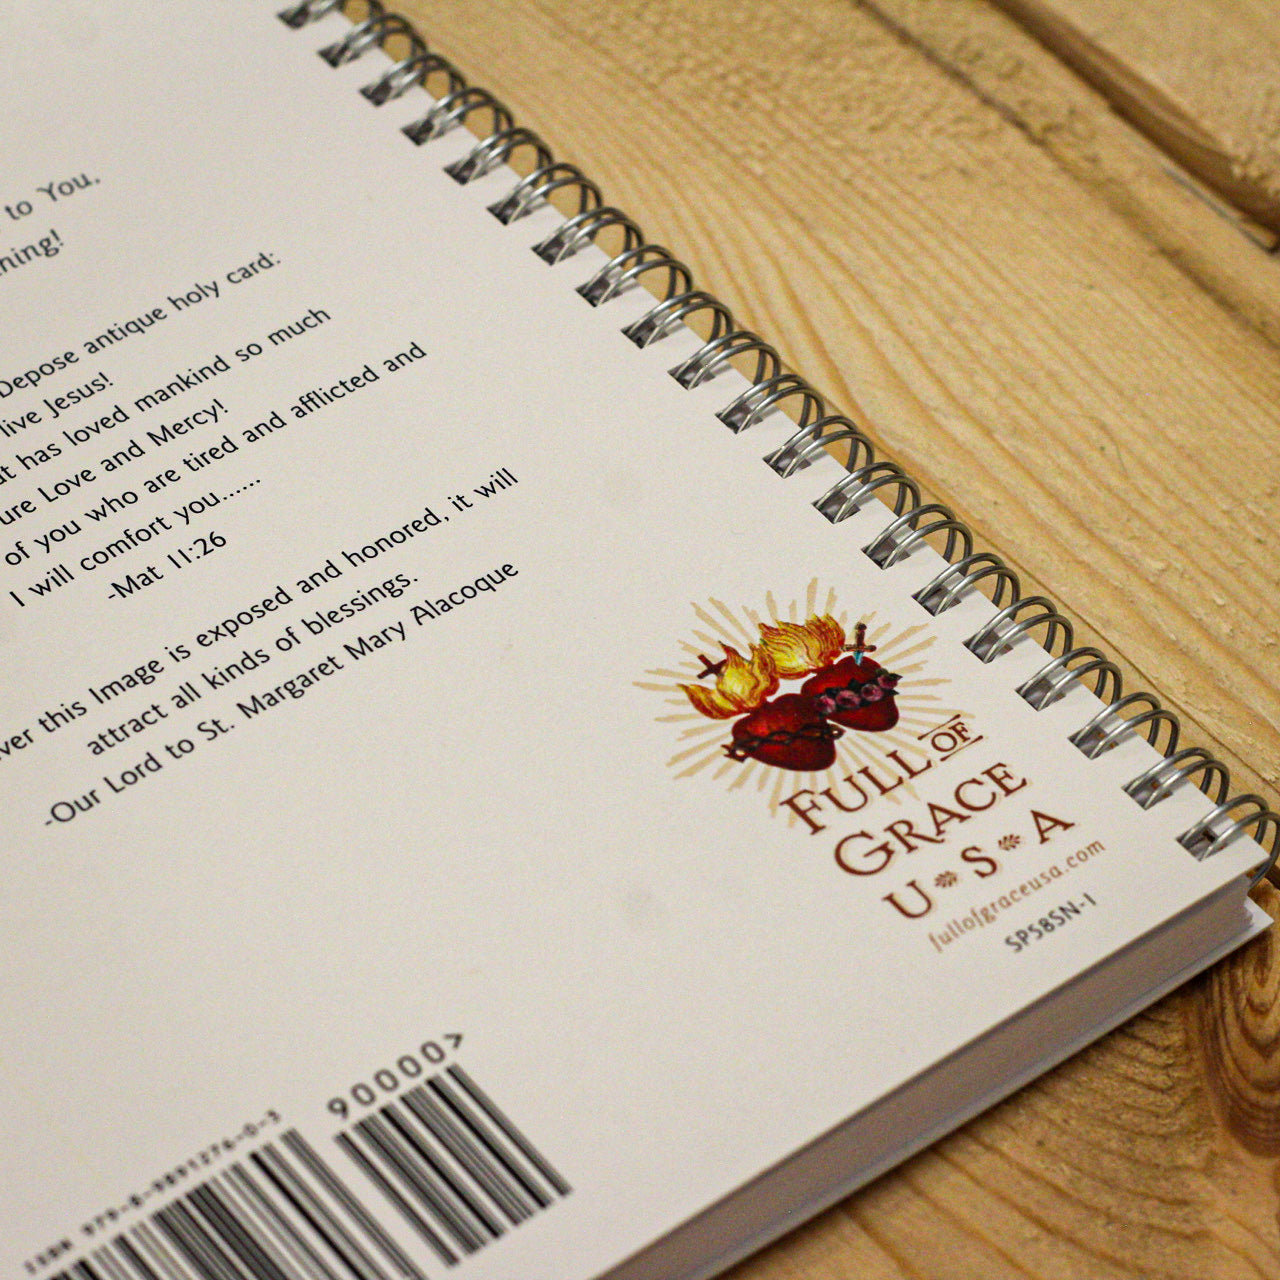 to You.
hing!
Depose antique holy card:
live Jesus!
at has loved mankind so much
ure Love and Mercy!
of you who are tired and afflicted and
I will comfort you......
-Mat 11:26
ver this Image is exposed and honored, it will
attract all kinds of blessings.
-Our Lord to St. Margaret Mary Alacoque
FULL OF
GRACE
U S A
fullofgraceusa.com
SP58SN-1
90000>
ISBN 978-0-9891276-0-3